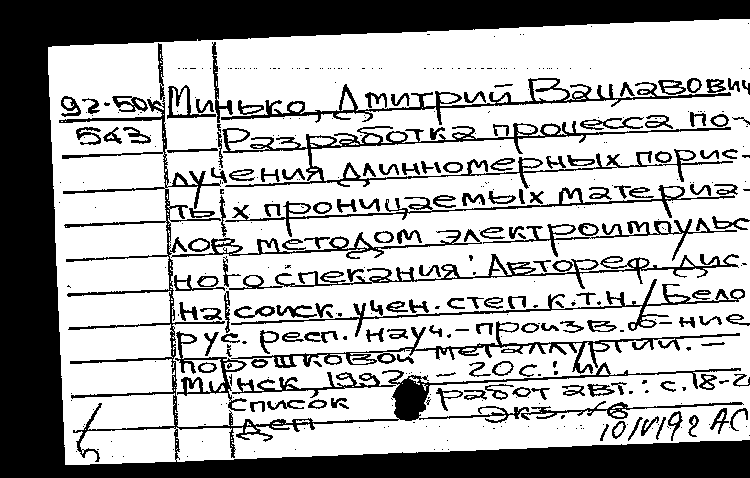 92-50к Минько, Дмитрий Вацлавович
543 Разработка процесса по-
лучения длинномерных порис-
тых проницаемых материа-
лов методом электроимпульс
ного спекания: Автореф. дис.
на соиск. учен. степ. к.т.н. / Бело
рус. респ. науч.-произв. о-ние
порошковой металлургии. –
Минск, 1992. – 20 с.: ил.
список работ авт.: с. 18-20
деп экз. № 6
10/IV192 АС